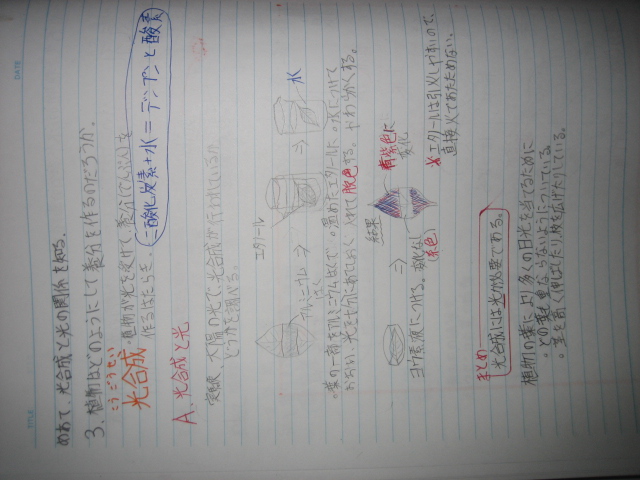 TITLE
DATE
めあて、光合成と光の関係を知る。
3、植物はどのようにして養分を作るのだろうか。
こうごうせい
光合成・植物が光を受けて養分(でんぷん)を
作るはたらき。
二酸化炭素+水=デンプンと酸素
A、光合成と光
実験、太陽の光で、光合成が行われているか
どうかを調べる。
エタノール
水
アルミニウム
はく
⇒
⇒
・葉の一部をアルミニウムはくで
おおい、光を十分にあてておく
・温めたエタノールに
入れて脱色する。
・水につけて
やわらかくする。
結果
ヨウ素液につける。
⇒
変化なし
(茶色)
青紫色に
変化
※エタノールは引火しやすいので、
直接火であたためない。
まとめ
光合成には光が必要である。
植物の葉に、より多くの日光を当てるために
・どの葉も重ならないようについている。
・茎を高く伸ばしたり枝を広げたりしている。